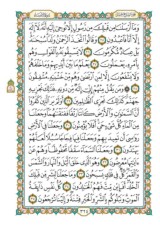 وَمَا أَرْسَلْنَا مِن قَبْلِكَ مِن رَّسُولٍ إِلَّا نُوحِي إِلَيْهِ أَنَّهُ لَا إِلَٰهَ
إِلَّا أَنَا فَاعْبُدُونِ ۝ وَقَالُوا اتَّخَذَ الرَّحْمَٰنُ وَلَدًا سُبْحَانَهُ
بَلْ عِبَادٌ مُّكْرَمُونَ ۝ لَا يَسْبِقُونَهُ بِالْقَوْلِ وَهُم
بِأَمْرِهِ يَعْمَلُونَ ۝ يَعْلَمُ مَا بَيْنَ أَيْدِيهِمْ وَمَا خَلْفَهُمْ
وَلَا يَشْفَعُونَ إِلَّا لِمَنِ ارْتَضَىٰ وَهُم مِّنْ خَشْيَتِهِ مُشْفِقُونَ
۝ وَمَن يَقُلْ مِنْهُمْ إِنِّي إِلَٰهٌ مِّن دُونِهِ فَذَٰلِكَ نَجْزِيهِ
جَهَنَّمَ كَذَٰلِكَ نَجْزِي الظَّالِمِينَ ۝ أَوَلَمْ يَرَ الَّذِينَ كَفَرُوا
أَنَّ السَّمَاوَاتِ وَالْأَرْضَ كَانَتَا رَتْقًا فَفَتَقْنَاهُمَا وَجَعَلْنَا
مِنَ الْمَاءِ كُلَّ شَيْءٍ حَيٍّ أَفَلَا يُؤْمِنُونَ ۝ وَجَعَلْنَا فِي الْأَرْضِ
رَوَاسِيَ أَن تَمِيدَ بِهِمْ وَجَعَلْنَا فِيهَا فِجَاجًا سُبُلًا لَّعَلَّهُمْ
يَهْتَدُونَ ۝ وَجَعَلْنَا السَّمَاءَ سَقْفًا مَّحْفُوظًا وَهُمْ عَنْ
آيَاتِهَا مُعْرِضُونَ ۝ وَهُوَ الَّذِي خَلَقَ اللَّيْلَ وَالنَّهَارَ وَالشَّمْسَ
وَالْقَمَرَ كُلٌّ فِي فَلَكٍ يَسْبَحُونَ ۝ وَمَا جَعَلْنَا لِبَشَرٍ مِّن
قَبْلِكَ الْخُلْدَ أَفَإِن مِّتَّ فَهُمُ الْخَالِدُونَ ۝ كُلُّ نَفْسٍ
ذَائِقَةُ الْمَوْتِ وَنَبْلُوكُم بِالشَّرِّ وَالْخَيْرِ فِتْنَةً وَإِلَيْنَا تُرْجَعُونَ ۝
٣٢٤